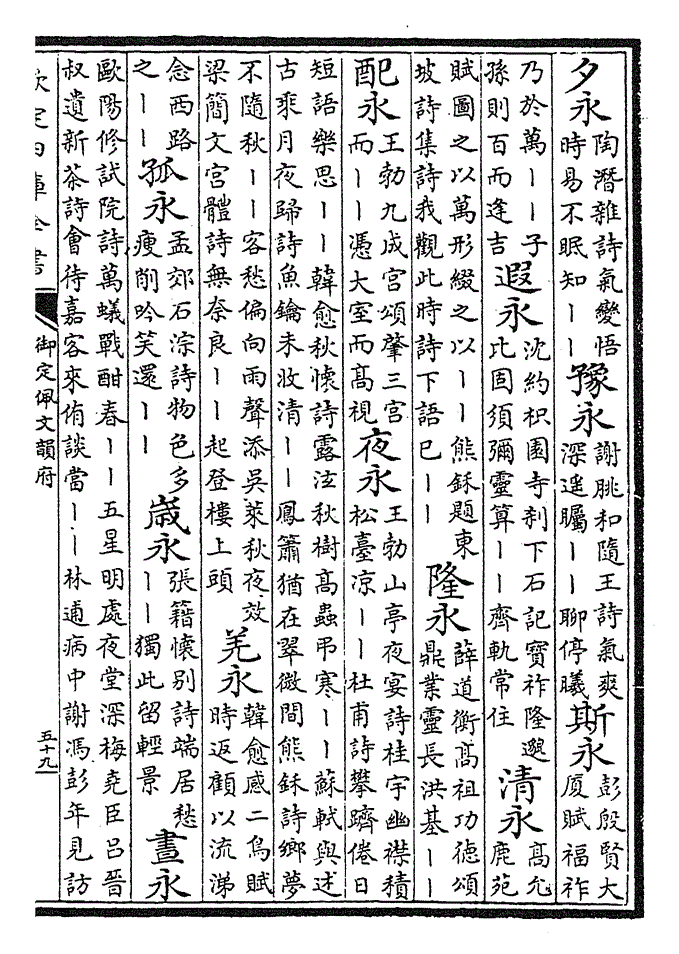 夕永 陶潛雜詩氣變悟時易不眠知丨丨 豫永 謝朓和隨王詩氣爽深遥矚丨丨聊停曦 斯永 彭殷賢大厦賦福祚
乃於萬丨丨子孫則百而逢吉 遐永 沈約枳園寺刹下石記寶祚隆邈比固須彌靈算丨丨齊軌常住 清永 高允鹿苑
賦圖之以萬形綴之以丨丨熊鉌題東坡詩集詩我觀此時詩下語已丨丨 隆永 薛道衡髙祖功德頌鼎業靈長洪基丨丨
配永 王勃九成宫頌肇三宫而丨丨憑大室而髙視 夜永 王勃山亭夜宴詩桂宇幽襟積松臺凉丨丨杜甫詩攀躋倦日
短語樂思丨丨韓愈秋懷詩露泫秋樹髙蟲弔寒丨丨蘇軾與述古乘月夜歸詩魚鑰未收清丨丨鳳簫猶在翠微間熊鉌詩鄉夢
不隨秋丨丨客愁偏向雨聲添吳萊秋夜效梁簡文宫體詩無奈良丨丨起登樓上頭 羌永 韓愈感二鳥賦時返顧以流涕
念西路之丨丨 孤永 孟郊石淙詩物色多瘦削吟笑還丨丨 歲永 張籍懷别詩端居愁丨丨獨此留輕景 晝永
歐陽修試院詩萬蟻戰酣春丨丨五星明處夜堂深梅堯臣吕晉叔遺新茶詩會待嘉客來侑談當丨丨林逋病中謝馮彭年見訪
欽定四庫全書
御定佩文韻府
五十九